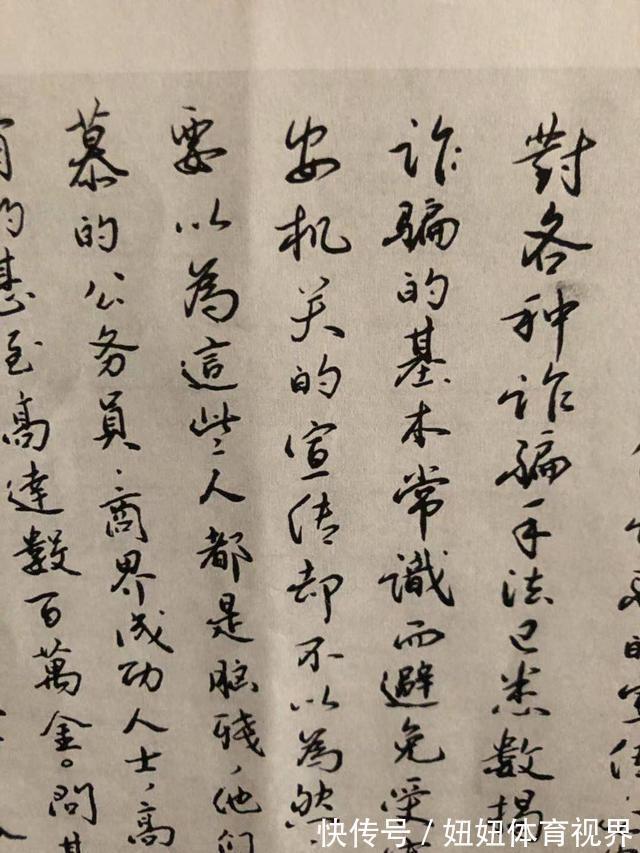 的宣传
對各种诈骗手法已悉数揭
诈骗的基本常識而避免受
安机关的宣传却不以為然
要以為這些人都是脑残，他们
慕的公务員、商界成功人士，高
有的甚至高達數百萬金。問其
快传号 / 妞妞体育视界